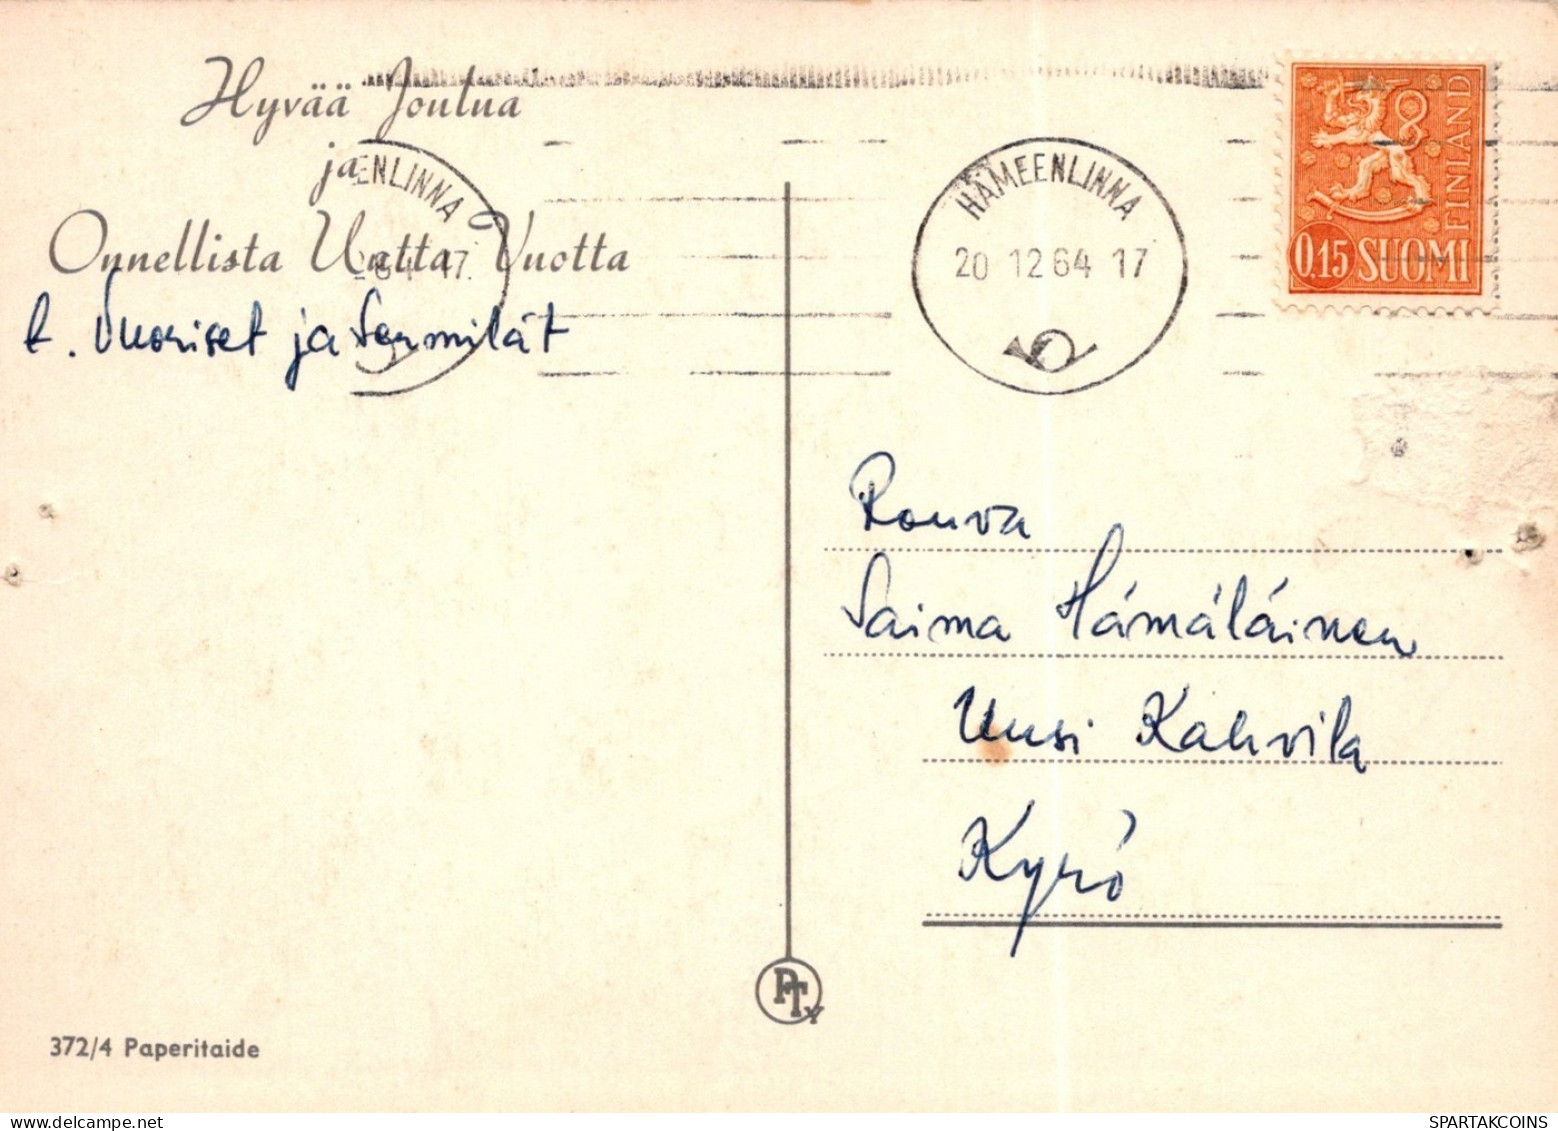 Hyvää Joulua
ja
Onnellista Uutta Vuotta
ENLINNA
64 17
t. Vuoriset ja Sermilät
HÄMEENLINNA
20 12 64 17
FINLAND
0,15 SUOMI
Rouva
Saima Hämäläinen
Uusi Kahvila
Kyrö
PTy
372/4 Paperitaide
SPARTAKCOINS